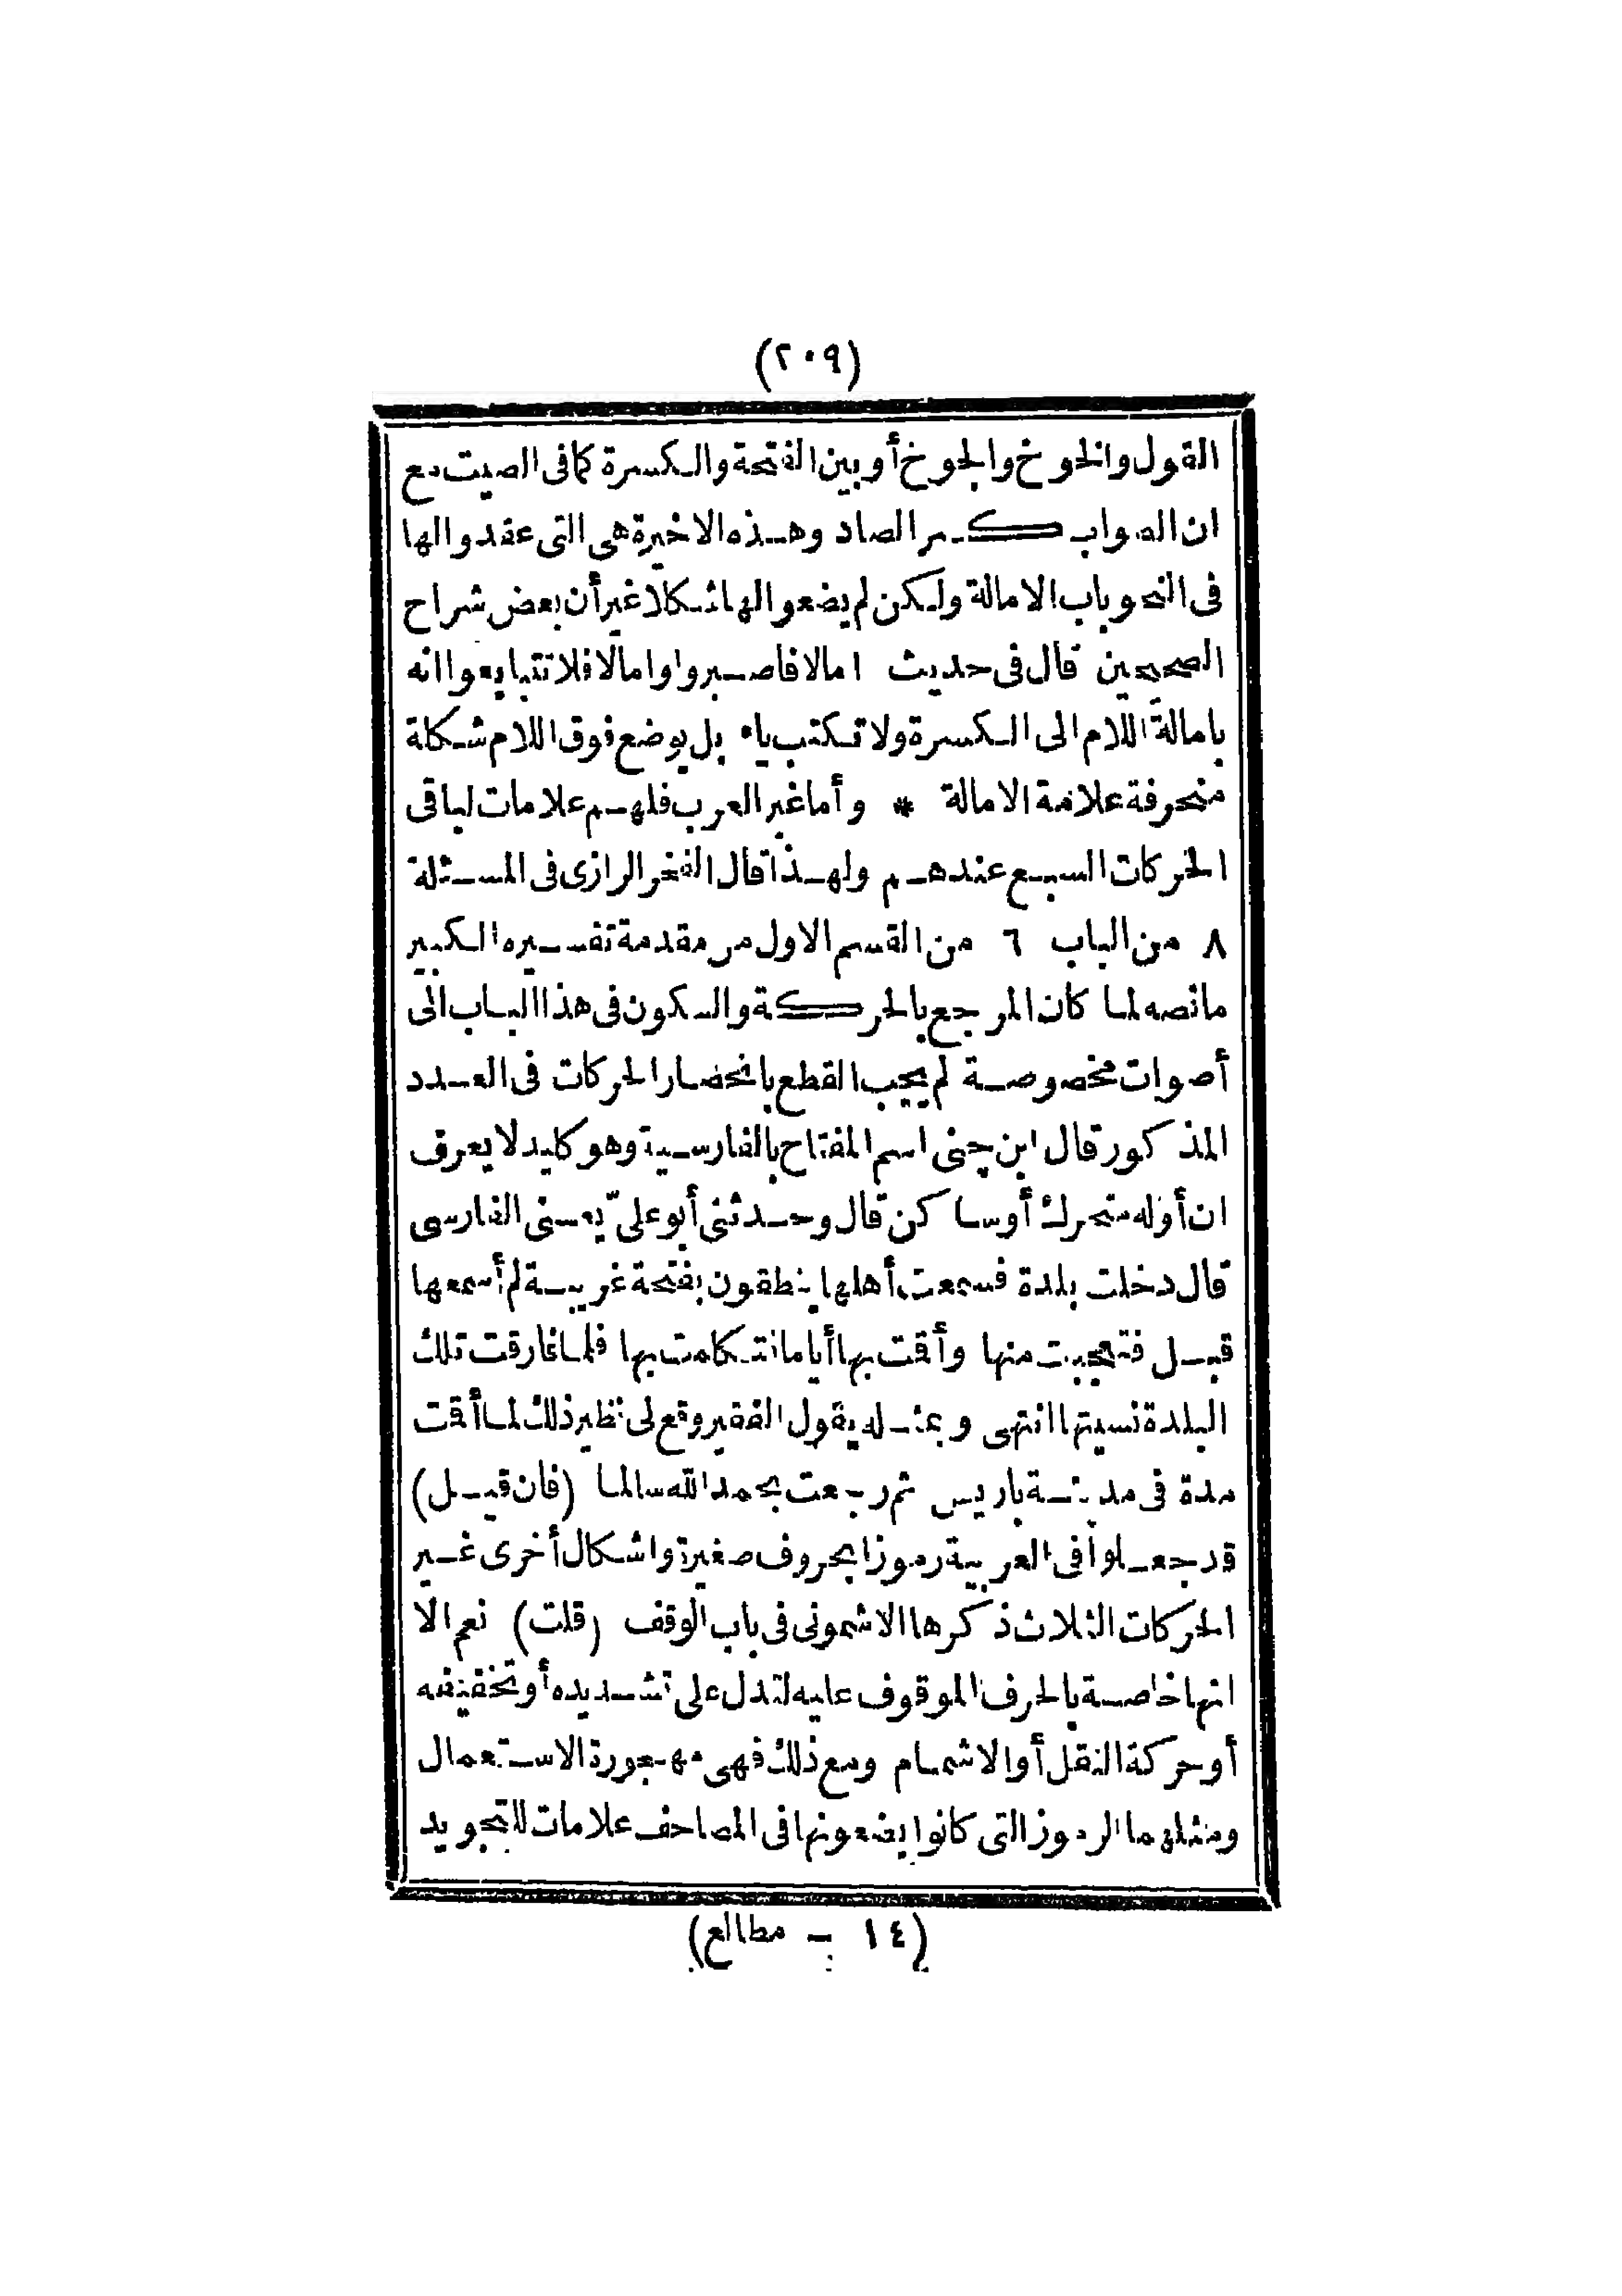 (٢٠٩)
القول والخوخ والجوخ أو بين الفتحة والكسرة كما فى الصيت مع
ان الصواب كسر الصاد وهذه الاخيرة هى التى عقدوا لها
فى النحو باب الامالة ولكن لم يضعوا لها شكلا غير أن بعض شراح
الصحيحين قال فى حديث امالا فاصبروا وامالا فلا تتبايعوا انه
بامالة اللام الى الكسرة ولا تكتب ياء بل يوضع فوق اللام شكلة
منحرفة علامة الامالة * وأما غير العرب فلهم علامات لباقى
الحركات السبع عندهم ولهذا قال الفخر الرازى فى المسئلة
٨ من الباب ٦ من القسم الاول من مقدمة تفسيره الكبير
مانصه لما كان المرجع بالحركة والسكون فى هذا الباب الى
أصوات مخصوصة لم يجب القطع بانحصار الحركات فى العدد
المذكور قال ابن جنى اسم المفتاح بالفارسية وهو كليد لا يعرف
ان أوله متحرك أو ساكن قال وحدثنى أبو علىّ يعنى الفارسى
قال دخلت بلدة فسمعت أهلها ينطقون بفتحة غريبة لم أسمعها
قبل فتعجبت منها وأقت بها أياما فتكلمت بها فلما فارقت تلك
البلدة نسيتها انتهى وبمثله يقول الفقير وقع لى نظير ذلك لما أقت
مدة فى مدينة باريس ثم رجعت بحمد الله سالما (فان قيل)
قد جعلوا فى العربية رموزا بحروف صغيرة واشكال أخرى غير
الحركات الثلاث ذكرها الاشمونى فى باب الوقف (قلت) نعم الا
انها خاصة بالحرف الموقوف عليه لتدل على تشديده أو تخفيفه
أو حركة النقل أو الاشمام ومع ذلك فهى مهجورة الاستعمال
ومثلهما الرموز التى كانوا يضعونها فى المصاحف علامات للتجويد
(١٤ - مطالع)